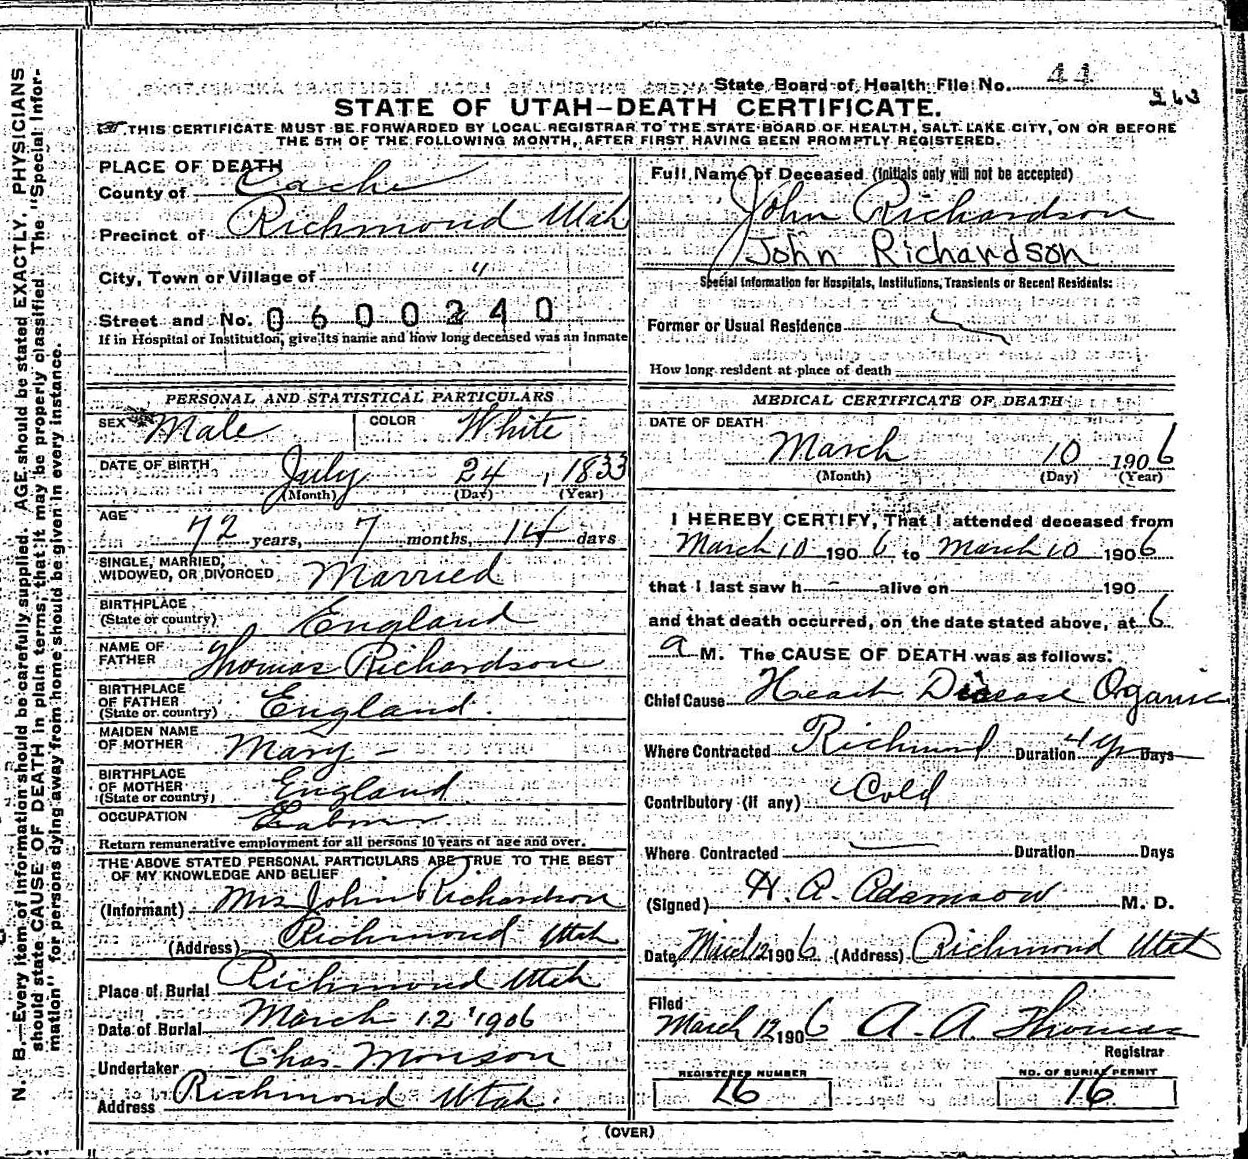 State Board of Health File No. 44
263
STATE OF UTAH—DEATH CERTIFICATE.
THIS CERTIFICATE MUST BE FORWARDED BY LOCAL REGISTRAR TO THE STATE BOARD OF HEALTH, SALT LAKE CITY, ON OR BEFORE
THE 5TH OF THE FOLLOWING MONTH, AFTER FIRST HAVING BEEN PROMPTLY REGISTERED.
PLACE OF DEATH
County of Cache
Precinct of Richmond Utah
City, Town or Village of "
Street and No. 0600240
If in Hospital or Institution, give its name and how long deceased was an inmate
PERSONAL AND STATISTICAL PARTICULARS
SEX Male COLOR White
DATE OF BIRTH July 24, 1833
(Month) (Day) (Year)
AGE 72 years, 7 months, 14 days
SINGLE, MARRIED,
WIDOWED, OR DIVORCED Married
BIRTHPLACE
(State or country) England
NAME OF
FATHER Thomas Richardson
BIRTHPLACE
OF FATHER
(State or country) England.
MAIDEN NAME
OF MOTHER Mary —
BIRTHPLACE
OF MOTHER
(State or country) England
OCCUPATION Labor
Return remunerative employment for all persons 10 years of age and over.
THE ABOVE STATED PERSONAL PARTICULARS ARE TRUE TO THE BEST
OF MY KNOWLEDGE AND BELIEF
(Informant) Mrs John Richardson
(Address) Richmond Utah
Place of Burial Richmond Utah
Date of Burial March 12 1906
Undertaker Chas. Monson
Address Richmond Utah.
Full Name of Deceased (Initials only will not be accepted)
John Richardson
John Richardson
Special Information for Hospitals, Institutions, Transients or Recent Residents:
Former or Usual Residence
How long resident at place of death
MEDICAL CERTIFICATE OF DEATH
DATE OF DEATH
March 10 1906
(Month) (Day) (Year)
I HEREBY CERTIFY, That I attended deceased from
March 10 1906 to March 10 1906
that I last saw h alive on 190
and that death occurred, on the date stated above, at 6
a M. The CAUSE OF DEATH was as follows:
Chief Cause Heart Disease Organic
Where Contracted Richmond Duration 4 yr Days
Contributory (if any) Cold
Where Contracted Duration Days
(Signed) H. A. Adamson M. D.
Date March 12 1906 (Address) Richmond Utah
Filed
March 12 1906 A. A. Thomas
Registrar
REGISTERED NUMBER NO. OF BURIAL PERMIT
16 16
(OVER)
N. B.—Every item of information should be carefully supplied. AGE should be stated EXACTLY. PHYSICIANS
should state CAUSE OF DEATH in plain terms, that it may be properly classified. The "Special Infor-
mation" for persons dying away from home should be given in every instance.